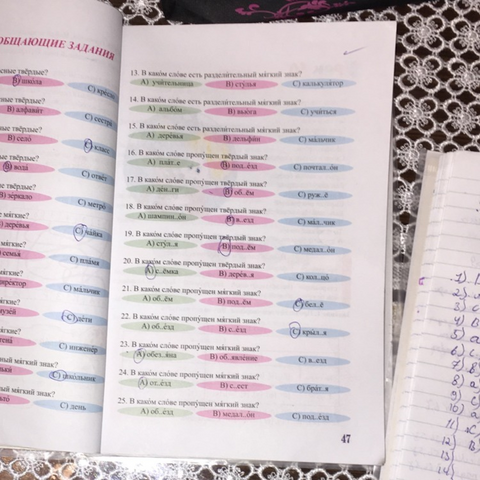 ОБЩАЮЩИЕ ЗАДАНИЯ
сные твёрдые?
B) шко́ла
ные твёрдые?
B) алфави́т
C) сестра́
ые твёрдые?
B) село́
C) класс
ые твёрдые?
B) вода́
C) отве́т
ые твёрдые?
B) зе́ркало
C) метро́
е мягкие?
C) ча́йка
мягкие?
C) пла́мя
мягкие?
C) ма́льчик
мягкие?
C) де́ти
мягкие?
C) инжене́р
ный мягкий знак?
C) шко́льник
ный мягкий знак?
C) день
13. В како́м сло́ве есть раздели́тельный мя́гкий знак?
A) учи́тельница
B) сту́лья
C) калькуля́тор
14. В како́м сло́ве есть раздели́тельный мя́гкий знак?
A) альбо́м
B) вью́га
C) учи́ться
15. В како́м сло́ве есть раздели́тельный мя́гкий знак?
A) дере́вья
B) дельфи́н
C) ма́льчик
16. В како́м сло́ве пропу́щен твёрдый знак?
A) пла́т..е
B) под..е́зд
C) почтал..о́н
17. В како́м сло́ве пропу́щен твёрдый знак?
A) де́н..ги
B) об..ём
C) руж..ё
18. В како́м сло́ве пропу́щен твёрдый знак?
A) шампин..о́н
B) в..езд
C) ма́л..чик
19. В како́м сло́ве пропу́щен твёрдый знак?
A) сту́л..я
B) под..ём
C) медал..о́н
20. В како́м сло́ве пропу́щен твёрдый знак?
A) с..ёмка
B) дере́в..я
C) кол..цо́
21. В како́м сло́ве пропу́щен мя́гкий знак?
A) об..ём
B) под..ём
C) бел..ё
22. В како́м сло́ве пропу́щен мя́гкий знак?
A) об..е́зд
B) с..езд
C) кры́л..я
23. В како́м сло́ве пропу́щен мя́гкий знак?
A) обез..я́на
B) об..явле́ние
C) в..езд
24. В како́м сло́ве пропу́щен мя́гкий знак?
B) с..ест
C) бра́т..я
25. В како́м сло́ве пропу́щен мя́гкий знак?
A) об..е́зд
B) медал..о́н
C) под..е́зд
47
1)
2)
3) C
4) B
5) a
6) c
7) B
8) a
9) c
10) a
11) C
12) B
13)
14)